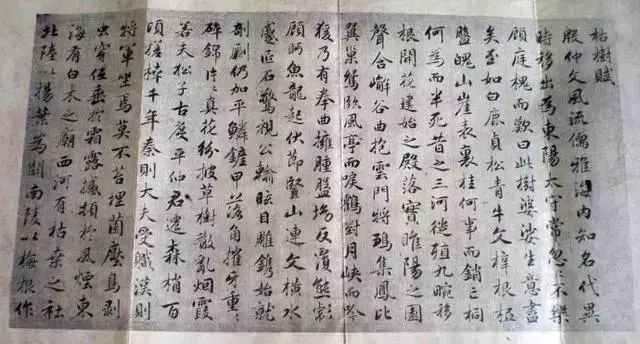 枯樹賦
殷仲文風流儒雅海內知名代異
時移出為東陽太守常忽〻不樂
顧庭槐而歎曰此樹婆娑生意盡
矣至如白鹿貞松青牛文梓根柢
盤魄山崖表裏桂何事而銷亡桐
何為而半死昔之三河徙殖九畹移
根開花建始之殿落實睢陽之園
聲含嶰谷曲抱雲門將鶵集鳳比
翼巢鴛臨風亭而唳鶴對月峽而吟
猨乃有拳曲擁腫盤坳反覆熊彪
顧盼魚龍起伏節豎山連文橫水
蹙匠石驚視公輸眩目雕鐫始就
剞劂仍加平鱗鏟甲落角摧牙重〻
碎錦片〻真花紛披草樹散亂烟霞
若夫松子古度平仲君遷森梢百
頃槎桙千年秦則大夫受職漢則
將軍坐焉莫不苔埋菌壓鳥剥
虫穿低垂於霜露撼頓於風烟東
海有白木之廟西河有枯桑之社
北陸以楊葉為關南陵以梅根作